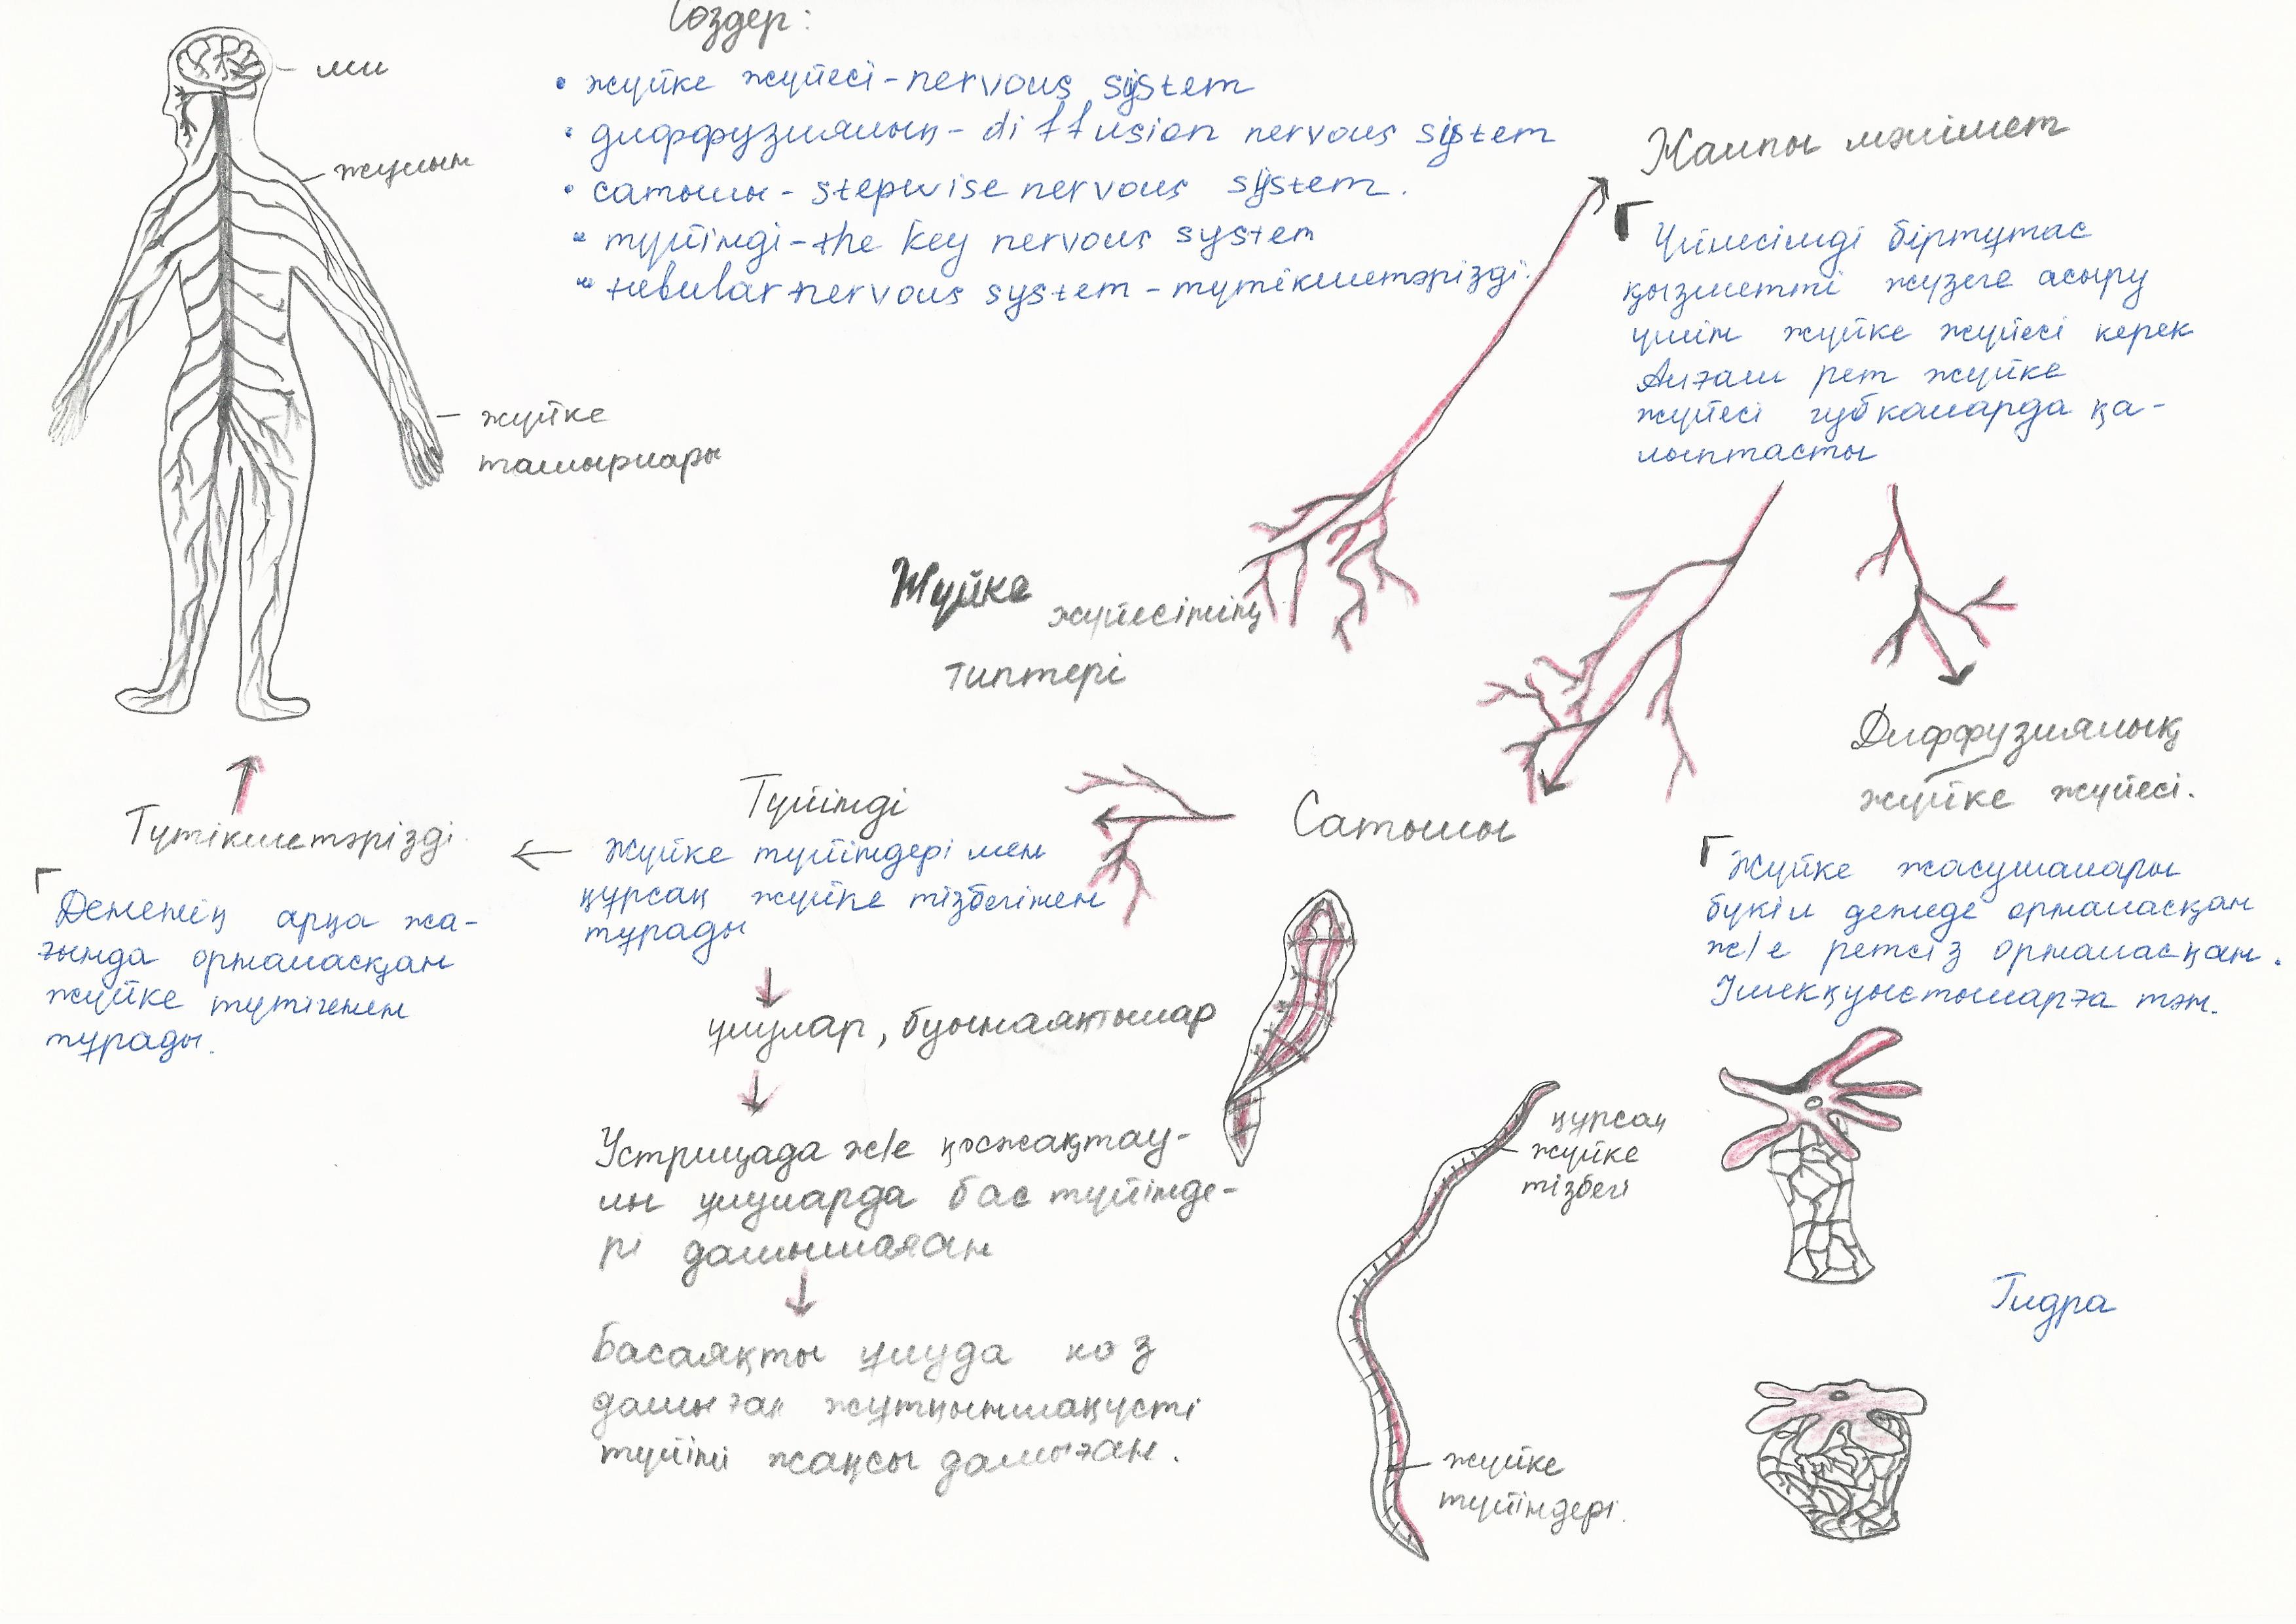 Сөздер:
• жүйке жүйесі - nervous system
• диффузиялық - diffusion nervous system
• сатылы - stepwise nervous system.
• түйінді - the key nervous system
• tubular nervous system - түтікшетәрізді.
ми
жұлын
жүйке
тамырлары
Жалпы мәлімет
Үйлесімді біртұтас
қызметті жүзеге асыру
үшін жүйке жүйесі керек
Алғаш рет жүйке
жүйесі губкаларда қа-
лыптасты
Жүйке жүйесінің
типтері
Диффузиялық
жүйке жүйесі.
Жүйке жасушалары
бүкіл денеде орналасқан
ж/е ретсіз орналасқан.
Ішекқуыстыларға тән.
Гидра
Сатылы
құрсақ
жүйке
тізбегі
жүйке
түйіндері.
Түйінді
Жүйке түйіндері мен
құрсақ жүйке тізбегінен
тұрады
ұлулар, буынаяқтылар
Устрицада ж/е қосжақтау-
лы ұлуларда бас түйінде-
рі дамымаған
Басаяқты ұлуда көз
дамыған жұтқыншақүсті
түйіні жақсы дамыған.
Түтікшетәрізді.
Дененің арқа жа-
ғында орналасқан
жүйке түтігінен
тұрады.